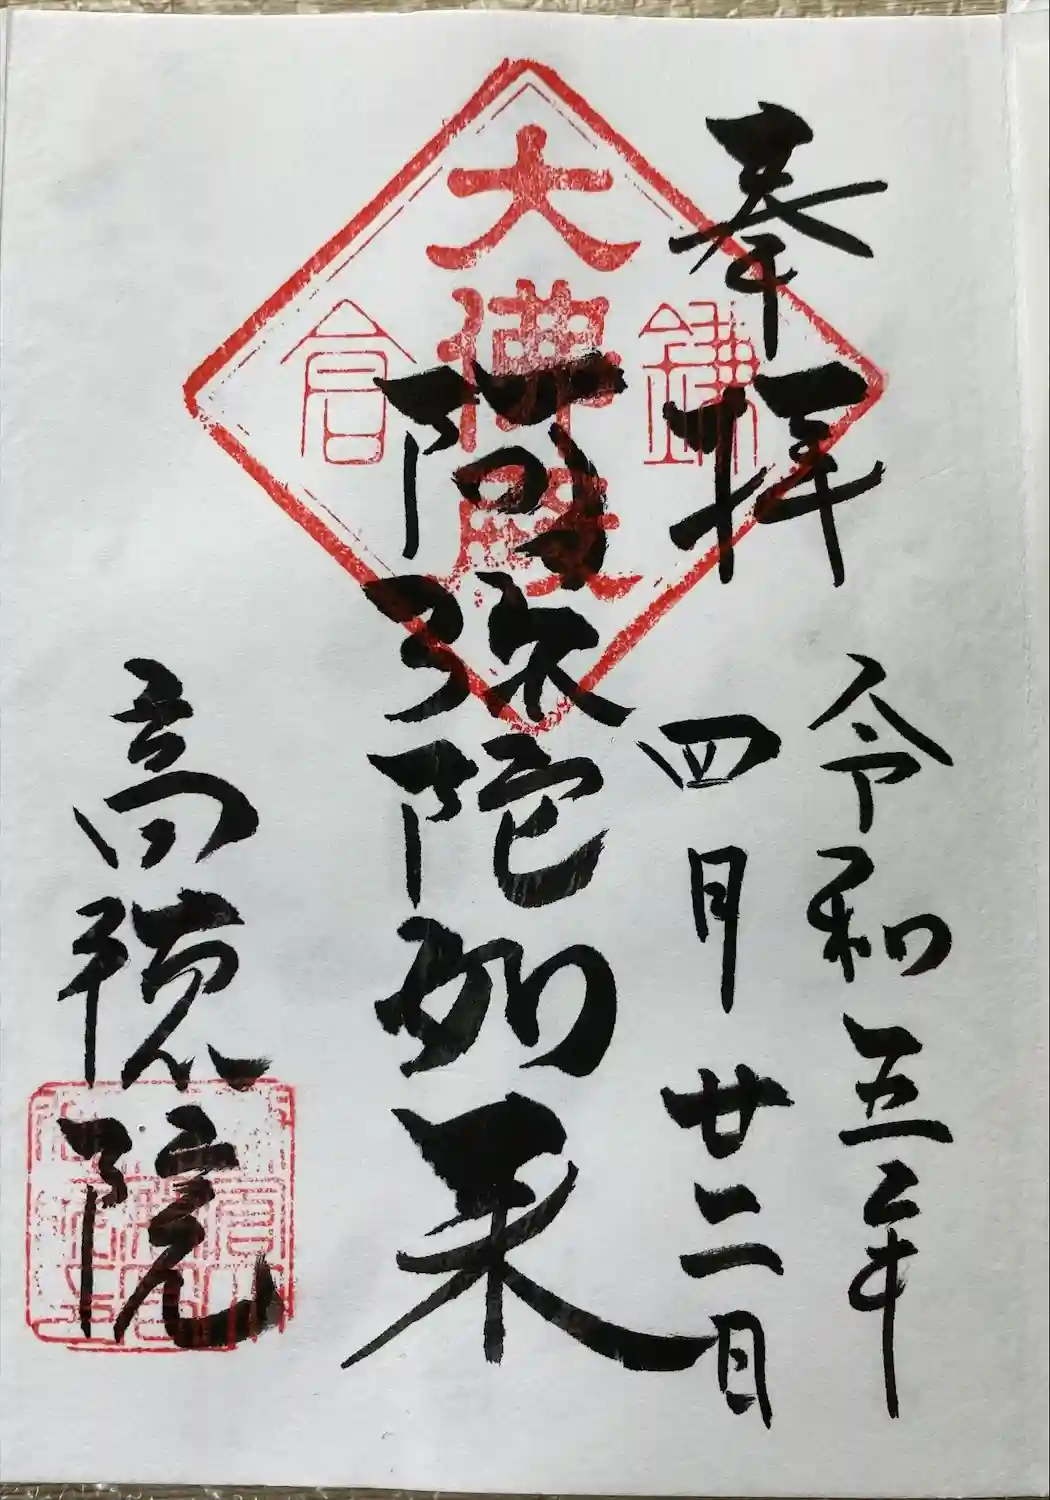 奉拝
令和五年
四月廿二日
阿弥陀如来
高徳院
大佛殿
鎌
倉